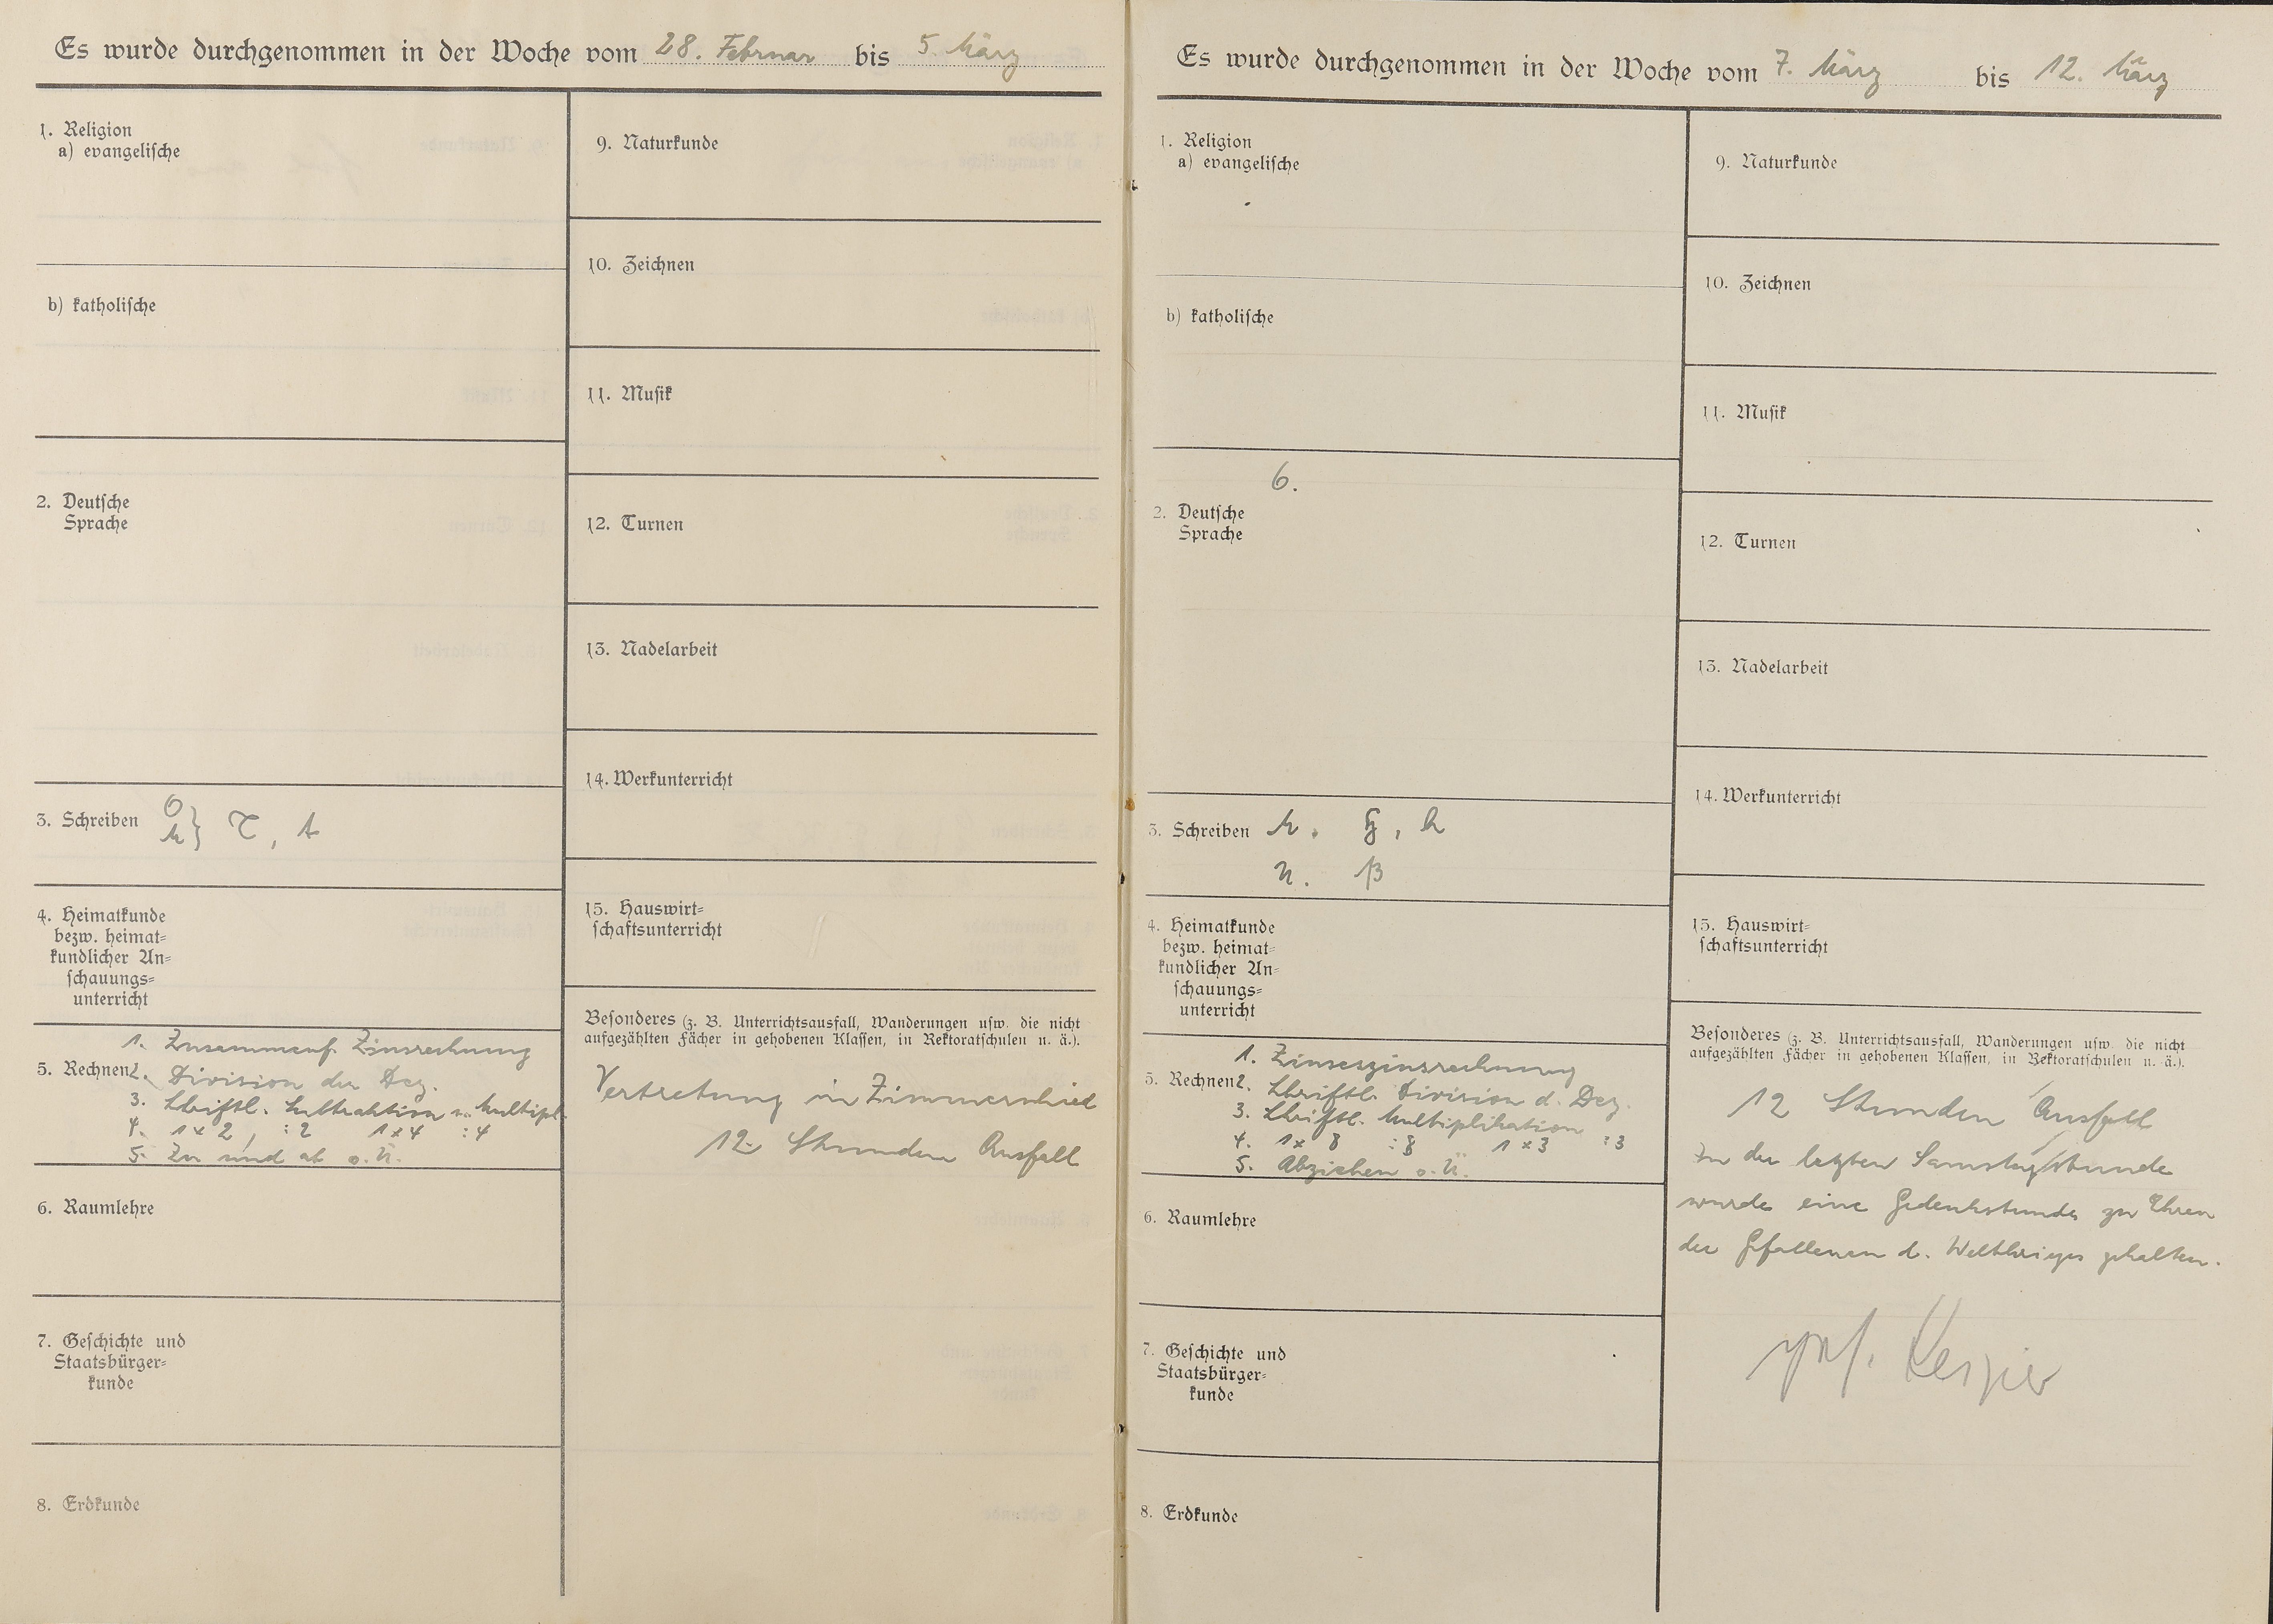 Es wurde durchgenommen in der Woche vom 28. Februar bis 5. März
1. Religion
a) evangelische
b) katholische
2. Deutsche
Sprache
3. Schreiben O
M} T, t
4. Heimatkunde
bezw. heimat-
kundlicher An-
schauungs-
unterricht
1. Zusammenf. Zinsrechnung
5. Rechnen 2. Division der Dez.
3. Schriftl. Subtraktion u. Multipl.
4. 1x2, :2 1x4 :4
5. Zu und ab o. Ü.
6. Raumlehre
7. Geschichte und
Staatsbürger-
kunde
8. Erdkunde
9. Naturkunde
10. Zeichnen
11. Musik
12. Turnen
13. Nadelarbeit
14. Werkunterricht
15. Hauswirt-
schaftsunterricht
Besonderes (z. B. Unterrichtsausfall, Wanderungen usw. die nicht
aufgezählten Fächer in gehobenen Klassen, in Rektoratschulen u. ä.).
Vertretung in Zimmerschied
12 Stunden Ausfall
Es wurde durchgenommen in der Woche vom 7. März bis 12. März
1. Religion
a) evangelische
b) katholische
6.
2. Deutsche
Sprache
3. Schreiben M. h
U. ß
4. Heimatkunde
bezw. heimat-
kundlicher An-
schauungs-
unterricht
1. Zinseszinsrechnung
5. Rechnen 2. Schriftl. Division d. Dez.
3. Schriftl. Multiplikation
4. 1x 8 :8 1x3 :3
5. Abziehen o. Ü.
6. Raumlehre
7. Geschichte und
Staatsbürger-
kunde
8. Erdkunde
9. Naturkunde
10. Zeichnen
11. Musik
12. Turnen
13. Nadelarbeit
14. Werkunterricht
15. Hauswirt-
schaftsunterricht
Besonderes (z. B. Unterrichtsausfall, Wanderungen usw. die nicht
aufgezählten Fächer in gehobenen Klassen, in Rektoratschulen u. ä.).
12 Stunden Ausfall
In der letzten Samstagstunde
wurde eine Gedenkstunde zu Ehren
der Gefallenen d. Weltkrieges gehalten.